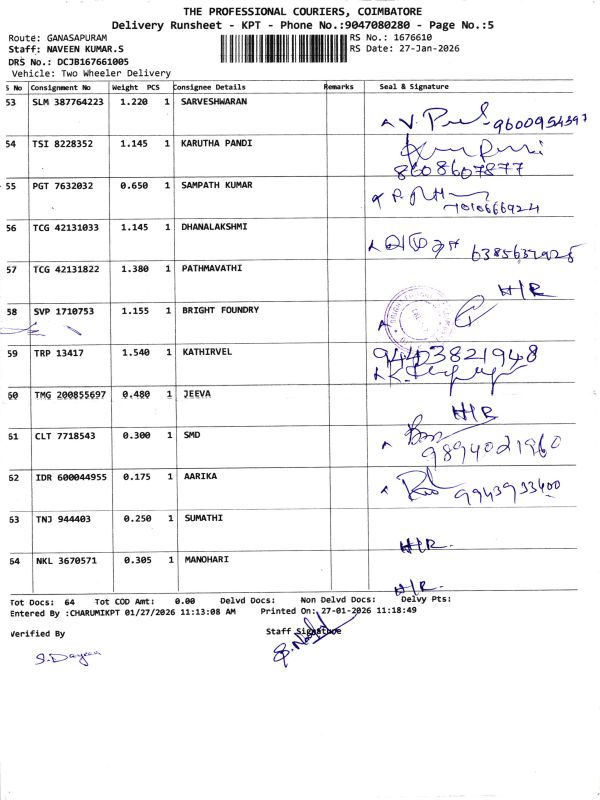 THE PROFESSIONAL COURIERS, COIMBATORE
Delivery Runsheet - KPT - Phone No.:9047080280 - Page No.:5
Route: GANASAPURAM
RS No.: 1676610
Staff: NAVEEN KUMAR.S
RS Date: 27-Jan-2026
DRS No.: DCJB167661005
Vehicle: Two Wheeler Delivery
S No Consignment No Weight PCS Consignee Details Remarks Seal & Signature
53 SLM 387764223 1.220 1 SARVESHWARAN
9600954397
54 TSI 8228352 1.145 1 KARUTHA PANDI
8608607877
55 PGT 7632032 0.650 1 SAMPATH KUMAR
56 TCG 42131033 1.145 1 DHANALAKSHMI
57 TCG 42131822 1.380 1 PATHMAVATHI
H/R
58 SVP 1710753 1.155 1 BRIGHT FOUNDRY
59 TRP 13417 1.540 1 KATHIRVEL
9443821948
60 TMG 200855697 0.480 1 JEEVA
H/R
61 CLT 7718543 0.300 1 SMD
9894021960
62 IDR 600044955 0.175 1 AARIKA
9943933400
63 TNJ 944403 0.250 1 SUMATHI
H/R.
64 NKL 3670571 0.305 1 MANOHARI
H/R.
Tot Docs: 64 Tot COD Amt: 0.00 Delvd Docs: Non Delvd Docs: Delvy Pts:
Entered By :CHARUMIKPT 01/27/2026 11:13:08 AM Printed On: 27-01-2026 11:18:49
Verified By Staff Signature